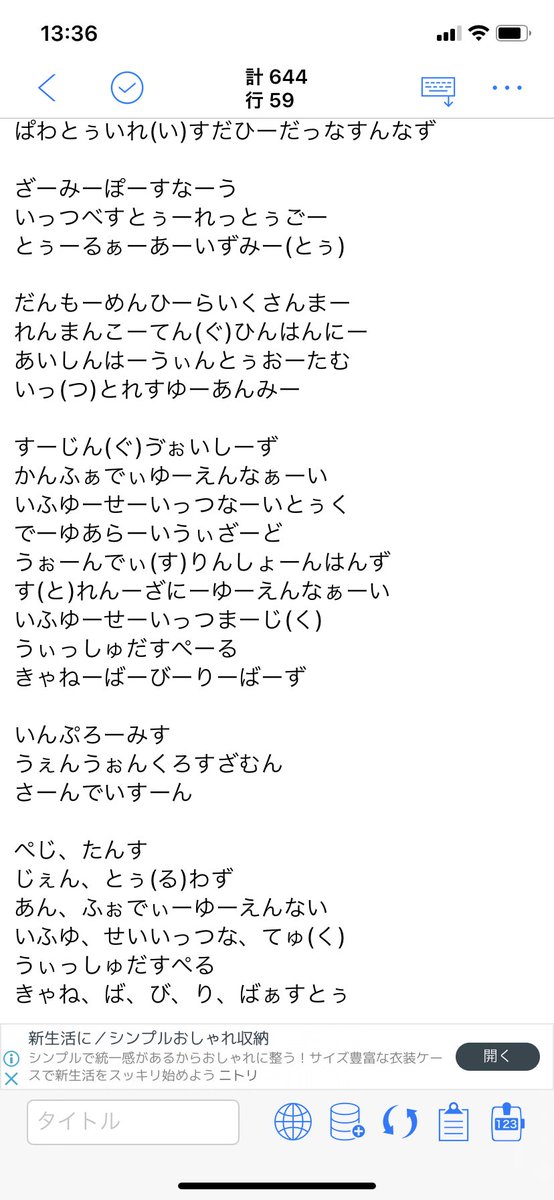 13:36
計 644
行 59
ぱわとぅいれ(い)すだひーだっなすんなず
ざーみーぽーすなーう
いっつべすとぅーれっとぅごー
とぅーるぁーあーいずみー(とぅ)
だんもーめんひーらいくさんまー
れんまんこーてん(ぐ)ひんはんにー
あいしんはーうぃんとぅおーたむ
いっ(つ)とれすゆーあんみー
すーじん(ぐ)ゔぉいしーず
かんふぁでぃゆーえんなぁーい
いふゆーせーいっつなーいとぅく
でーゆあらーいうぃざーど
うぉーんでぃ(す)りんしょーんはんず
す(と)れんーざにーゆーえんなぁーい
いふゆーせーいっつまーじ(く)
うぃっしゅだすぺーる
きゃねーばーびーりーばーず
いんぷろーみす
うぇんうぉんくろすざむん
さーんでいすーん
ぺじ、たんす
じぇん、とぅ(る)わず
あん、ふぉでぃーゆーえんない
いふゆ、せいいっつな、てゅ(く)
うぃっしゅだすぺる
きゃね、ば、び、り、ばぁすとぅ
新生活に／シンプルおしゃれ収納
シンプルで統一感があるからおしゃれに整う！サイズ豊富な衣装ケー
スで新生活をスッキリ始めよう ニトリ
開く
タイトル
123